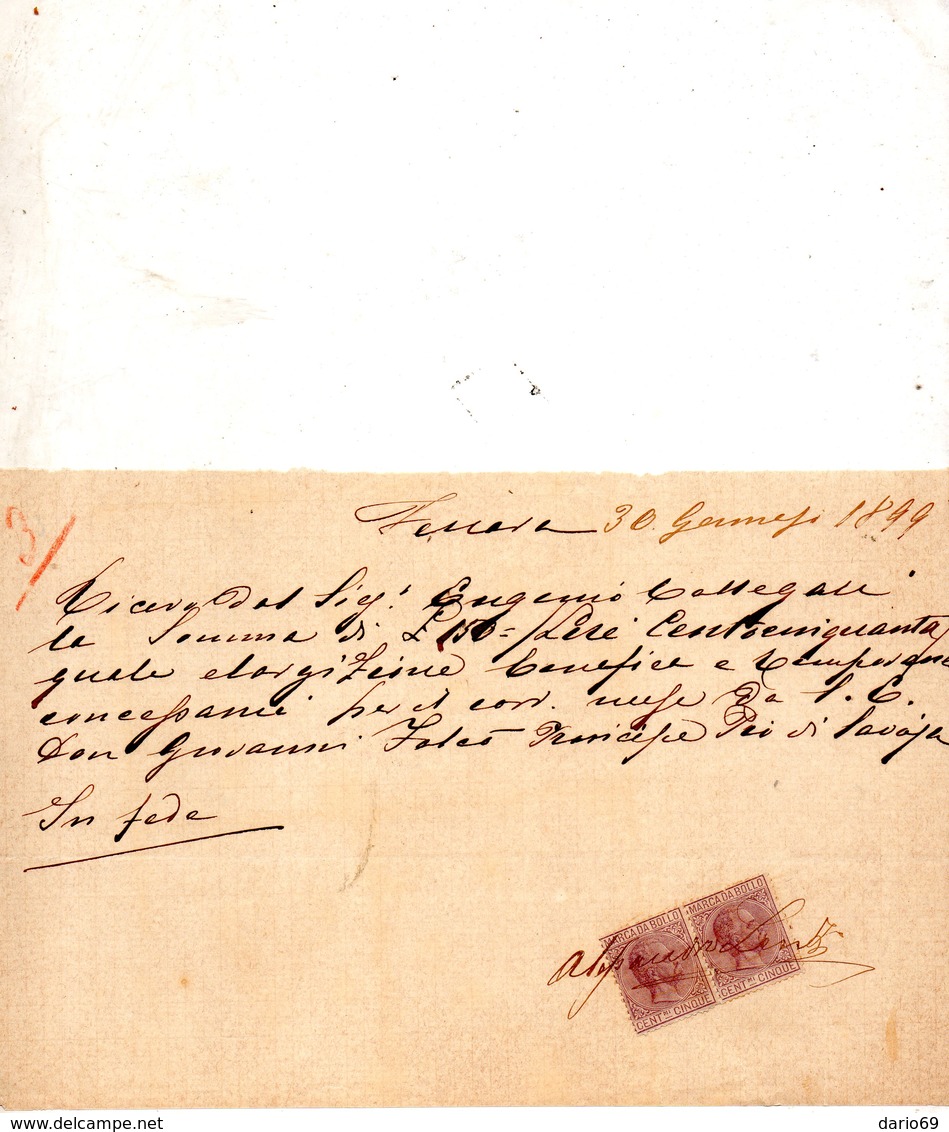 3/
Ferrara 30 Gennajo 1899
Ricevo dal Sig.r Eugenio Collegari
la Somma di £ 150= Lire Centocinquanta
quale elargizione benefica e temporanea
concessami per il corr. mese da S. E.
Don Giovanni Falcò Principe Pio di Savoja
In fede
Alessandro
MARCA DA BOLLO MARCA DA BOLLO
CENT.MI CINQUE CENT.MI CINQUE
www.delcampe.net
dario69